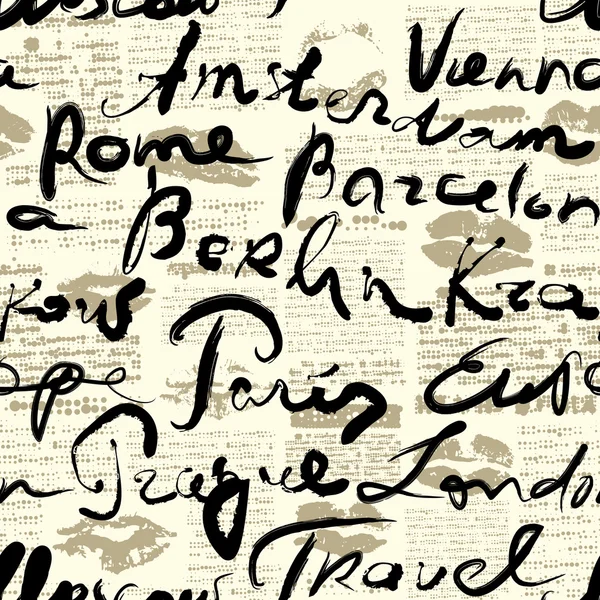 Moscow
Amsterdam
Vienna
Rome
Barcelon
a
Berlin
Kra
kow
Paris
Euro
ope
Prague
London
n
Moscow
Travel